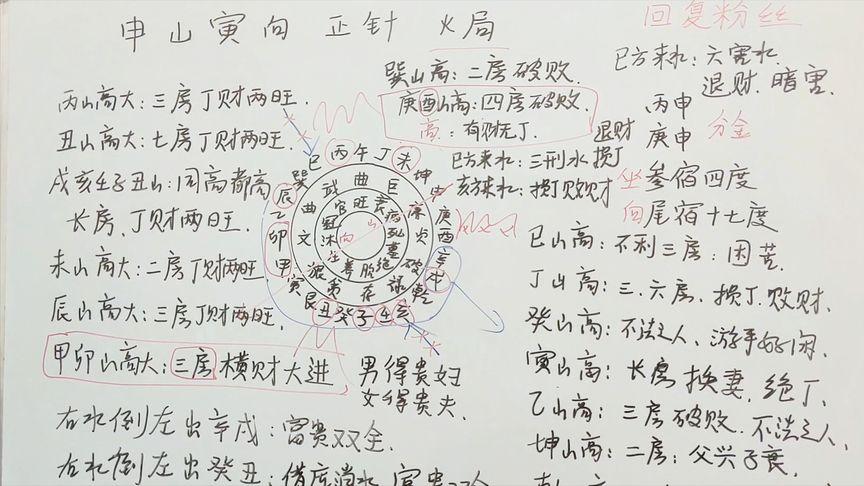 申山寅向 正针 火局
回复粉丝
丙山高大：三房丁财两旺.
丑山高大：七房丁财两旺.
戌亥壬子丑山：同高都高
长房、丁财两旺.
未山高大：二房丁财两旺.
辰山高大：三房丁财两旺.
甲卯山高大：三房横财大进
男得贵妇
女得贵夫.
右水倒左出辛戌：富贵双全.
右水倒左出癸丑：借库消水
巽山高：二房破败.
庚酉山高：四房破败.
高：有财无丁.
巳方来水：三刑水损丁
亥方来水：损丁败财
退财
巳方来水：六害水.
退财.暗害.
丙申
庚申
分金
坐参宿四度
向尾宿十七度
巳山高：不利三房：困苦.
丁山高：三、六房、损丁.败财.
癸山高：不法之人、游手好闲.
寅山高：长房换妻.绝丁.
乙山高：三房破败.不法之人.
坤山高：二房：父兴子衰.
巳丙午丁未坤申庚酉辛戌乾亥壬子癸丑艮寅甲卯乙辰巽
武曲巨廉贞破禄存
文曲
官旺衰病死墓绝胎养
冠沐
向山